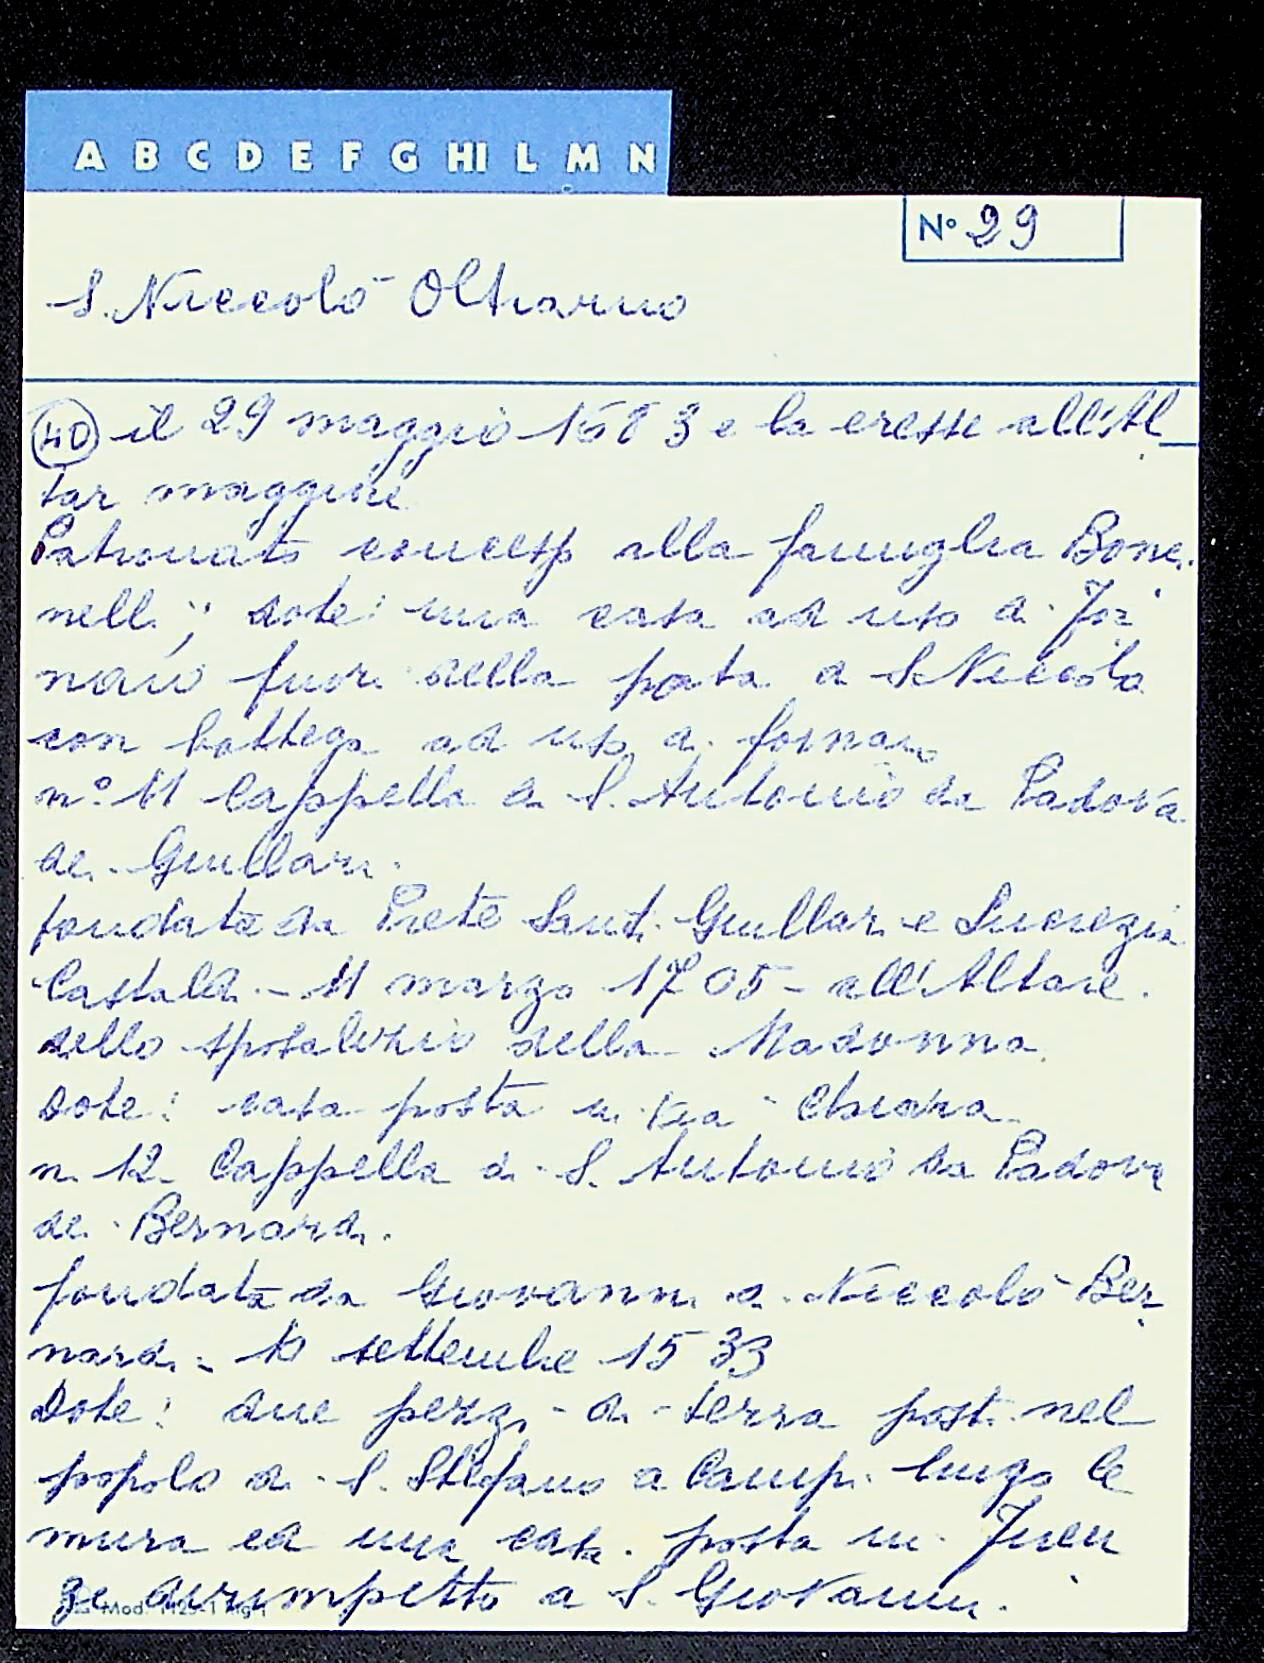 A B C D E F G HI L M N
N° 29
S. Niccolò Oltrarno
40 il 29 maggio 1683 e la eresse all'Al
tar maggiore
Patronato concesso alla famiglia Bone
nelli; dote: una casa ad uso di For
naio fuori della porta a S. Niccolò
con bottega ad uso di fornaio
n° 11 Cappella di S. Antonio da Padova
dei Giullari.
fondata da Prete Santi Giullari e Lucrezia
Castaldi - 11 marzo 1705 - all'Altare
dello sposalizio della Madonna
Dote: casa posta in via Chiara
n. 12 Cappella di S. Antonio da Padova
dei Bernardi.
fondata da Giovanni di Niccolò Ber
nardi - 10 settembre 1533
Dote: due pezzi di terra posti nel
popolo di S. Stefano a Campi lungo le
mura ed una casa posta in Firen
ze dirimpetto a S. Giovanni.
Mod.